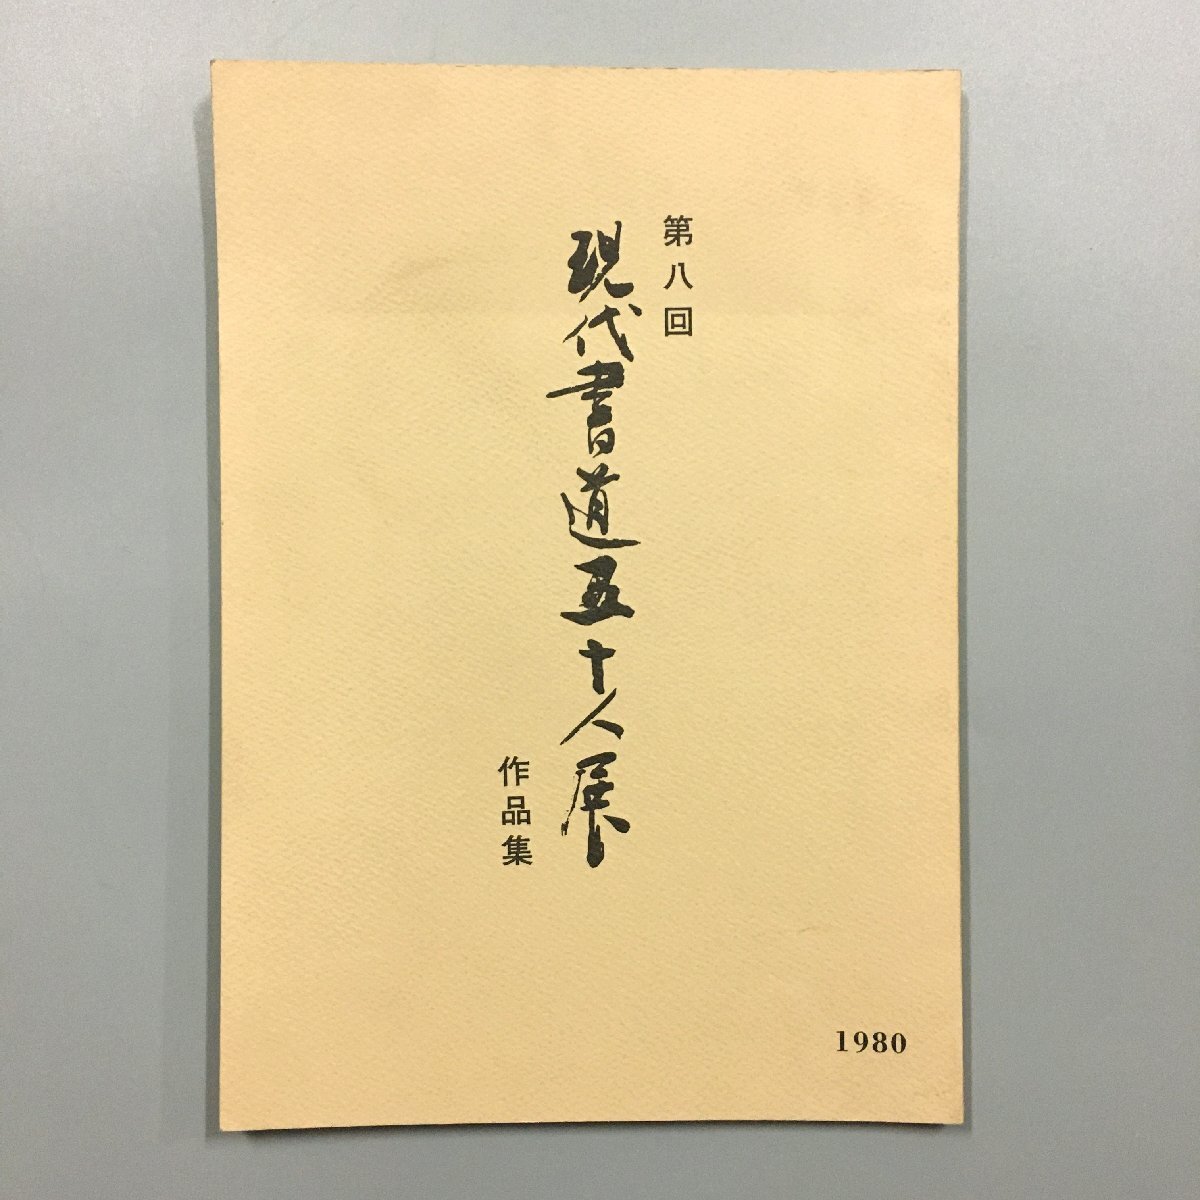 第八回
現代書道五十人展
作品集
1980